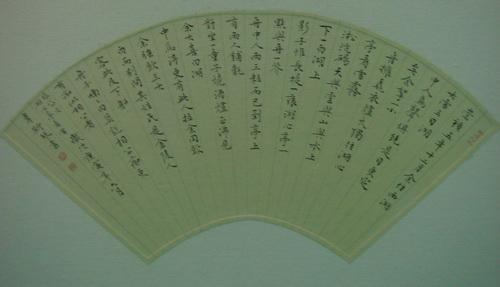 崇禎五年十二月余住西湖
大雪三日湖
中人鳥聲俱絕是日更定
矣余拏一小
舟擁毳衣爐火獨往湖心
亭看雪霧
淞沆碭天與雲與山與水上
下一白湖上
影子惟長堤一痕湖心亭一
點與舟一芥
舟中人兩三粒而已到亭上
有兩人鋪氈
對坐一童子燒酒爐正沸見
余大喜曰湖
中焉得更有此人拉余同飲
余強飲三大
白而別問其姓氏是金陵人
客此及下船
舟子喃喃曰莫說相公癡更
有癡似相公者